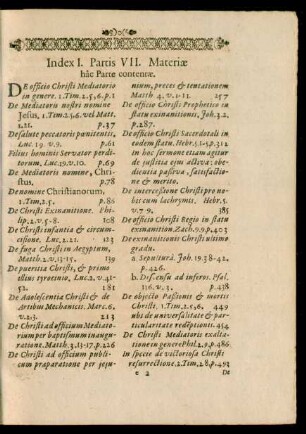 Index I. Partis VII. Materiæ
hâc Parte contentæ.
DE officio Christi Mediatorio
in genere. 1. Tim. 2. 5, 6. p. 1
De Mediatoris nostri nomine
Jesus, 1. Tim. 2. 5, 6. vel Matt.
1. 21. p. 37
De salute peccatoris pœnitentis,
Luc. 19. v. 9. 61
Filius hominis Servator perdi-
torum, Luc. 19. v. 10. 69
De Mediatoris nomine, Chri-
stus. p. 78
De nomine Christianorum,
1. Tim. 2, 5. p. 86
De Christi Exinanitione. Phi-
lip; 2. v. 5-8. p. 108
De Christi infantia & circum-
cisione. Luc. 2. 21. 123
De fuga Christi in Ægyptum,
Matth. 2. v. 13-15. 139
De pueritia Christi, & primo
illius tyrocinio, Luc. 2. v. 41-
52. 181
De Adolescentia Christi & de
Artibus Mechanicis. Marc. 6.
v. 2. 3. 213
De Christi ad officium Mediato-
rium per baptismum inaugu-
ratione. Matth. 3. 13-17. p. 226
De Christi ad officium publi-
cum præparatione per jeju-
nium, preces & tentationem
Matth. 4. v. 1-13. 257
De officio Christi Prophetico in
statu exinanitionis, Joh. 3. 2.
p. 287.
De officio Christi Sacerdotali in
eodem statu. Hebr. 5. 1-5. p. 312
in hac sermone etiam agitur
de justitia ejus activa; obe-
dientia passiva, satisfactio-
ne & merito.
De intercessione Christi pro no-
bis cum lachrymis, Hebr. 5.
v. 7-9, 385
De officio Christi Regio in statu
exinanitionis, Zach. 9. 9, p. 405
De exinanitionis Christi ultimo
gradu.
a. Sepultura. Joh. 19. 38-42,
p. 426.
b. Descensu ad inferos. Psal.
116. v. 3. p. 438
De objecto Passionis & mortis
Christi, 1 Tim, 2. 5, 6, 449
ubi de universalitate & par-
ticularitate redēptionis. 454
De Christi Mediatoris exalta-
tione in genere Phil. 2. 9, p. 486
in specie de victoriosa Christi
resurrectione, 2. Tim, 2. 8. p. 493
e 2 De